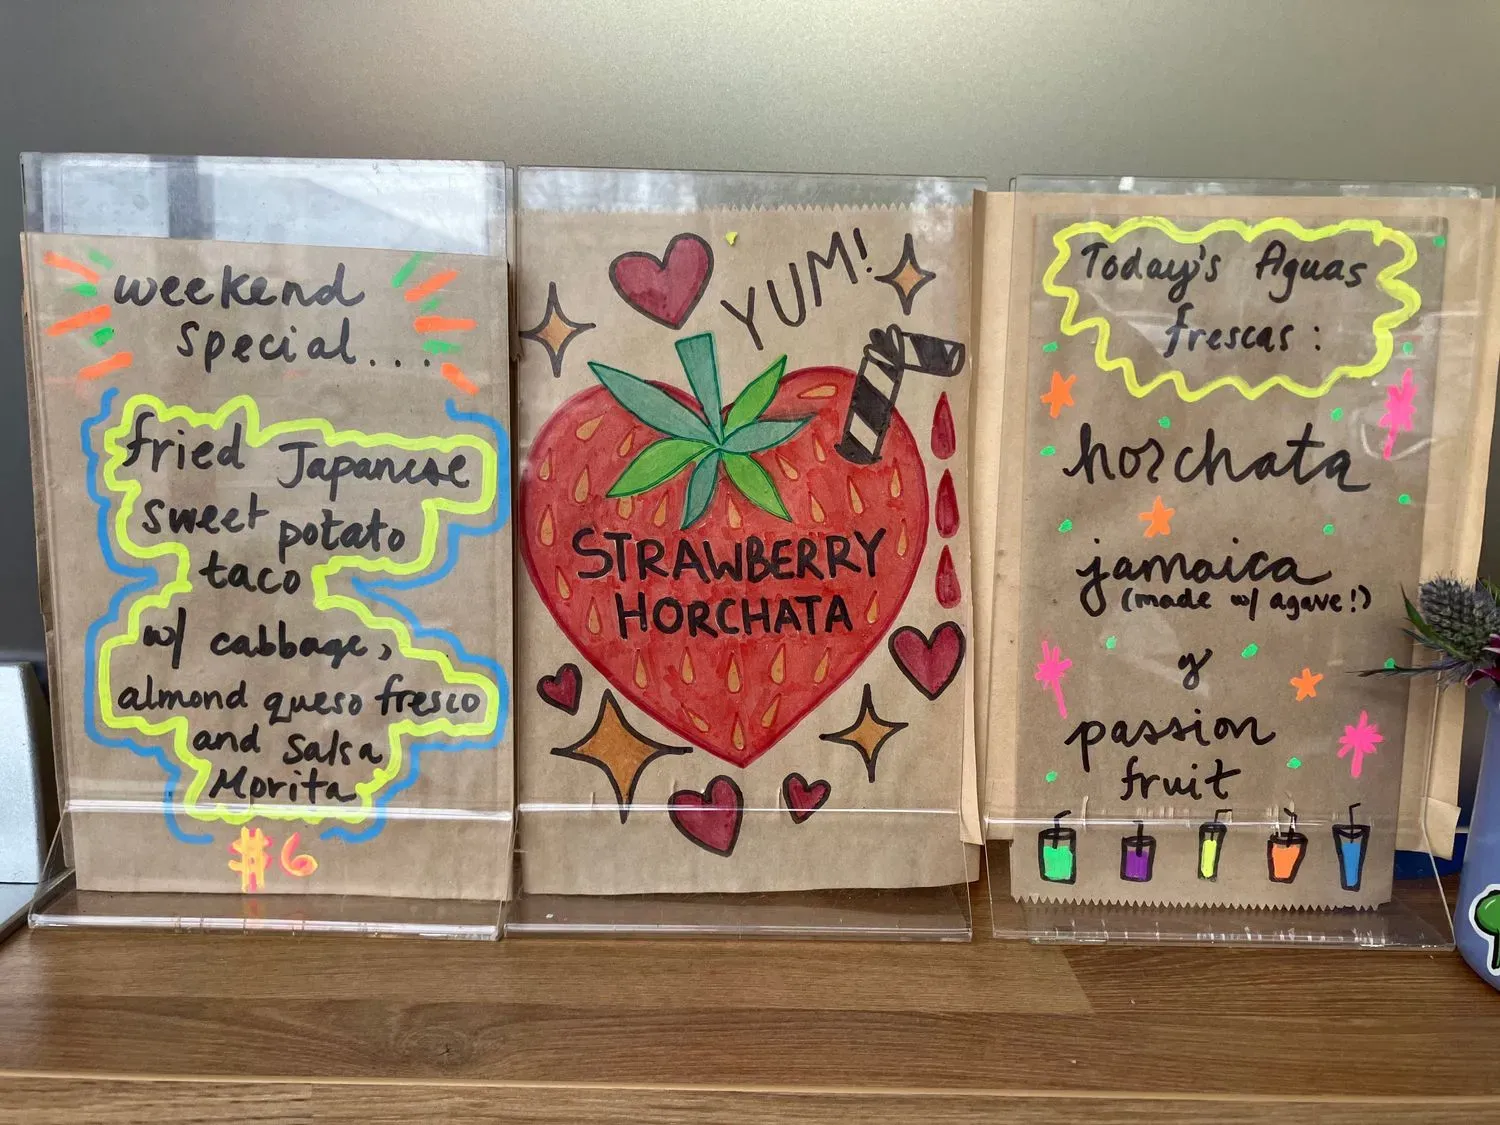 weekend
special....
fried Japanese
sweet potato
taco
w/ cabbage,
almond queso fresco
and Salsa
Morita
$6
YUM!
STRAWBERRY
HORCHATA
Today's Aguas
frescas :
horchata
jamaica
(made w/ agave!)
y
passion
fruit